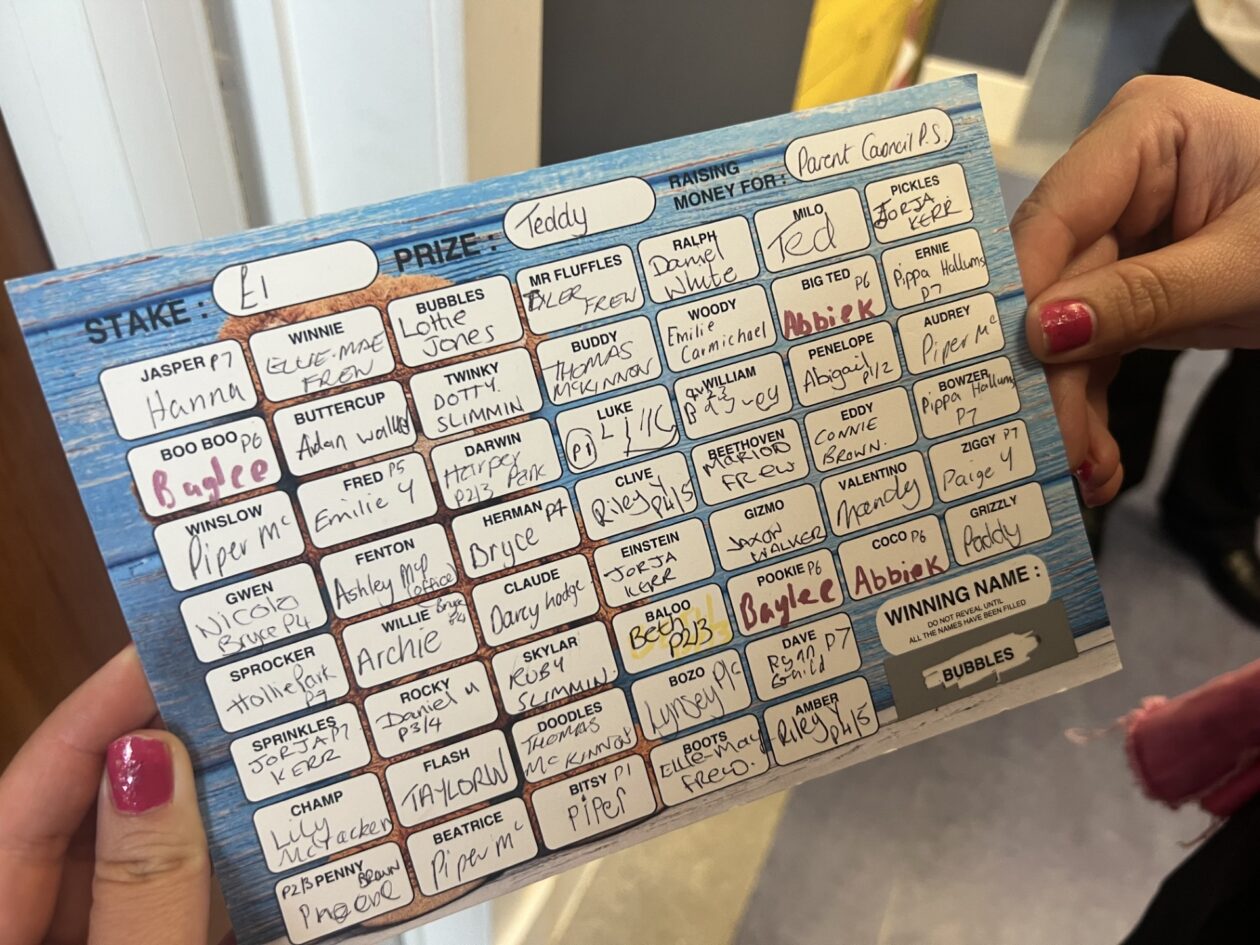 STAKE : £1 PRIZE : Teddy RAISING
MONEY FOR : Parent Council P.S.
JASPER P7
Hanna
BOO BOO P6
Baylee
WINSLOW
Piper Mc
GWEN
Nicola
Bruce P4
SPROCKER
Hollie Park
P7
SPRINKLES
JORJA P7
KERR
CHAMP
Lily
McCracken
P2/3 PENNY BROWN
WINNIE
ELLIE-MAE
FREW
BUTTERCUP
Adan
FRED P5
Emilie Y
FENTON
Ashley McP
(office)
WILLIE Bryce
P4
Archie
ROCKY
Daniel
P3/4
FLASH
TAYLOR W
BEATRICE
Piper Mc
BUBBLES
Lottie
Jones
TWINKY
DOTTY
SLIMMIN
DARWIN
Harper
P2/3 Park
HERMAN P4
Bryce
CLAUDE
Darcy Hodge
SKYLAR
RUBY
SLIMMIN.
DOODLES
THOMAS
McKINNON
BITSY P1
PiPer
MR FLUFFLES
TYLER FREW
BUDDY
THOMAS
McKINNON
LUKE
P1
CLIVE
Riley P4/5
EINSTEIN
JORJA
KERR
BALOO
Beth
P2/3
BOZO
Lynsey
BOOTS
Ellie-May
Frew.
RALPH
Daniel
White
WOODY
Emilie
Carmichael
WILLIAM
BEETHOVEN
MARION
FREW
GIZMO
JAXON
WALKER
POOKIE P6
Baylee
DAVE P7
Ryan
Guild
AMBER
Riley P4/5
MILO
Ted
BIG TED P6
AbbieK
PENELOPE
Abigail P1/2
EDDY
CONNIE
BROWN.
VALENTINO
Mandy
COCO P6
AbbieK
PICKLES
JORJA
KERR
ERNIE
Pippa Hallums
P7
AUDREY
Piper Mc
BOWZER
Pippa Hallums
P7
ZIGGY P7
Paige Y
GRIZZLY
Paddy
WINNING NAME :
DO NOT REVEAL UNTIL
ALL THE NAMES HAVE BEEN FILLED
BUBBLES